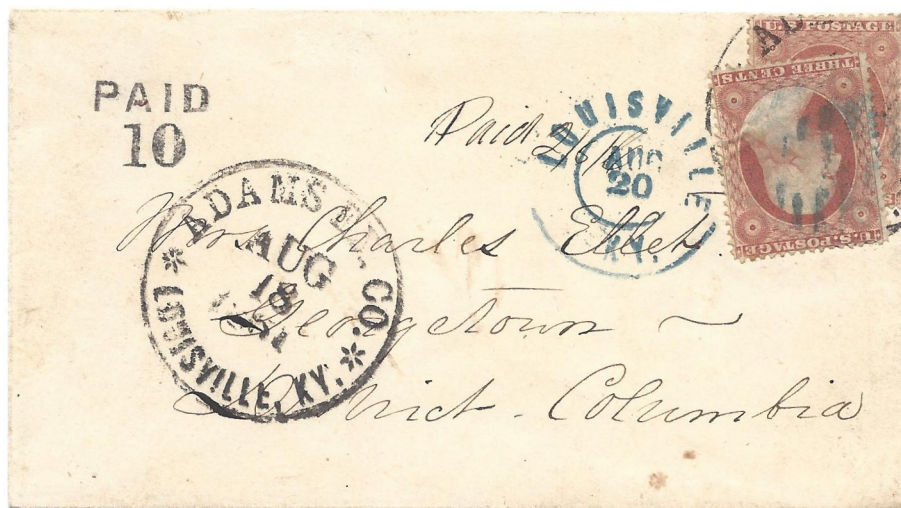 PAID
10
Paid
LOUISVILLE
AUG
20
KY.
AD
U.S. POSTAGE
THREE CENTS
U.S. POSTAGE
ADAMS EX. CO.
AUG
18
1861
LOUISVILLE, KY.
Mrs. Charles Ellet
Georgetown
District. Columbia